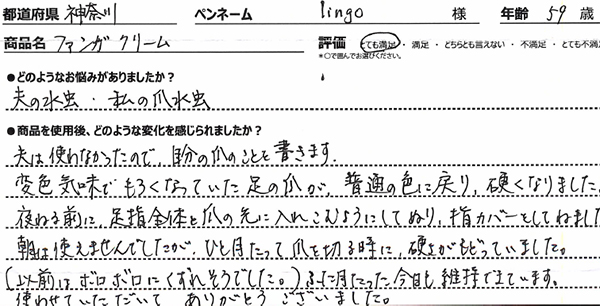 都道府県 神奈川 ペンネーム lingo 様 年齢 59 歳
商品名 ファンガクリーム 評価 とても満足 ・ 満足 ・ どちらとも言えない ・ 不満足 ・ とても不満
*○で囲んでお選びください。
●どのようなお悩みがありましたか?
夫の水虫・私の爪水虫
●商品を使用後、どのような変化を感じられましたか?
夫は使わなかったので、自分の爪のことを書きます。
変色気味でもろくなっていた足の爪が、普通の色に戻り、硬くなりました。
夜ねる前に、足指全体と爪の先に入れこむようにしてぬり、指カバーとしてねました
朝は使えませんでしたが、ひと月たって爪を切る時に、硬さがもどっていました。
(以前はボロボロにくずれそうでした。)ふた月たった今日も維持できています。
使わせていただいて ありがとうございました。